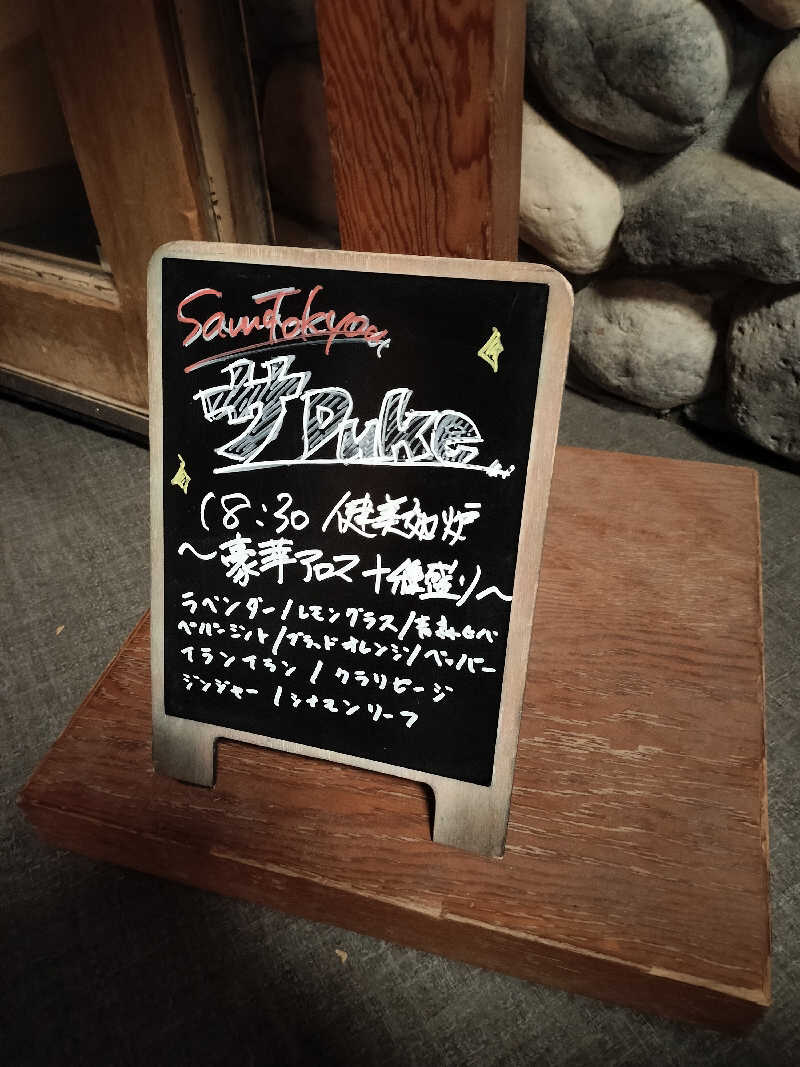 SaunaTokyo
サ Duke
18:30 健美効炉
～豪華アロマ十種盛り～
ラベンダー/レモングラス/青森ヒバ
ペパーミント/ブラッドオレンジ/ペッパー
イランイラン / クラリセージ
ジンジャー / シナモンリーフ